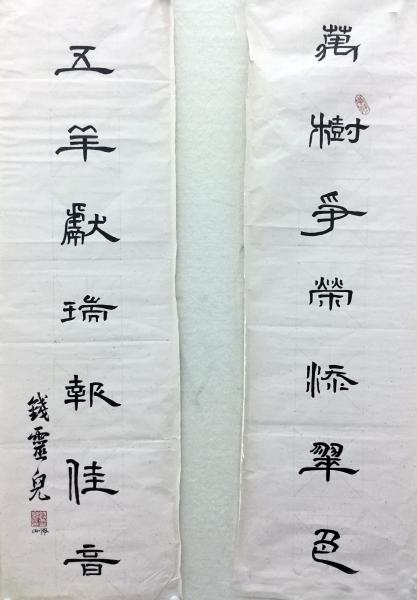 萬樹爭榮添翠色
五羊獻瑞報佳音
錢靈兒